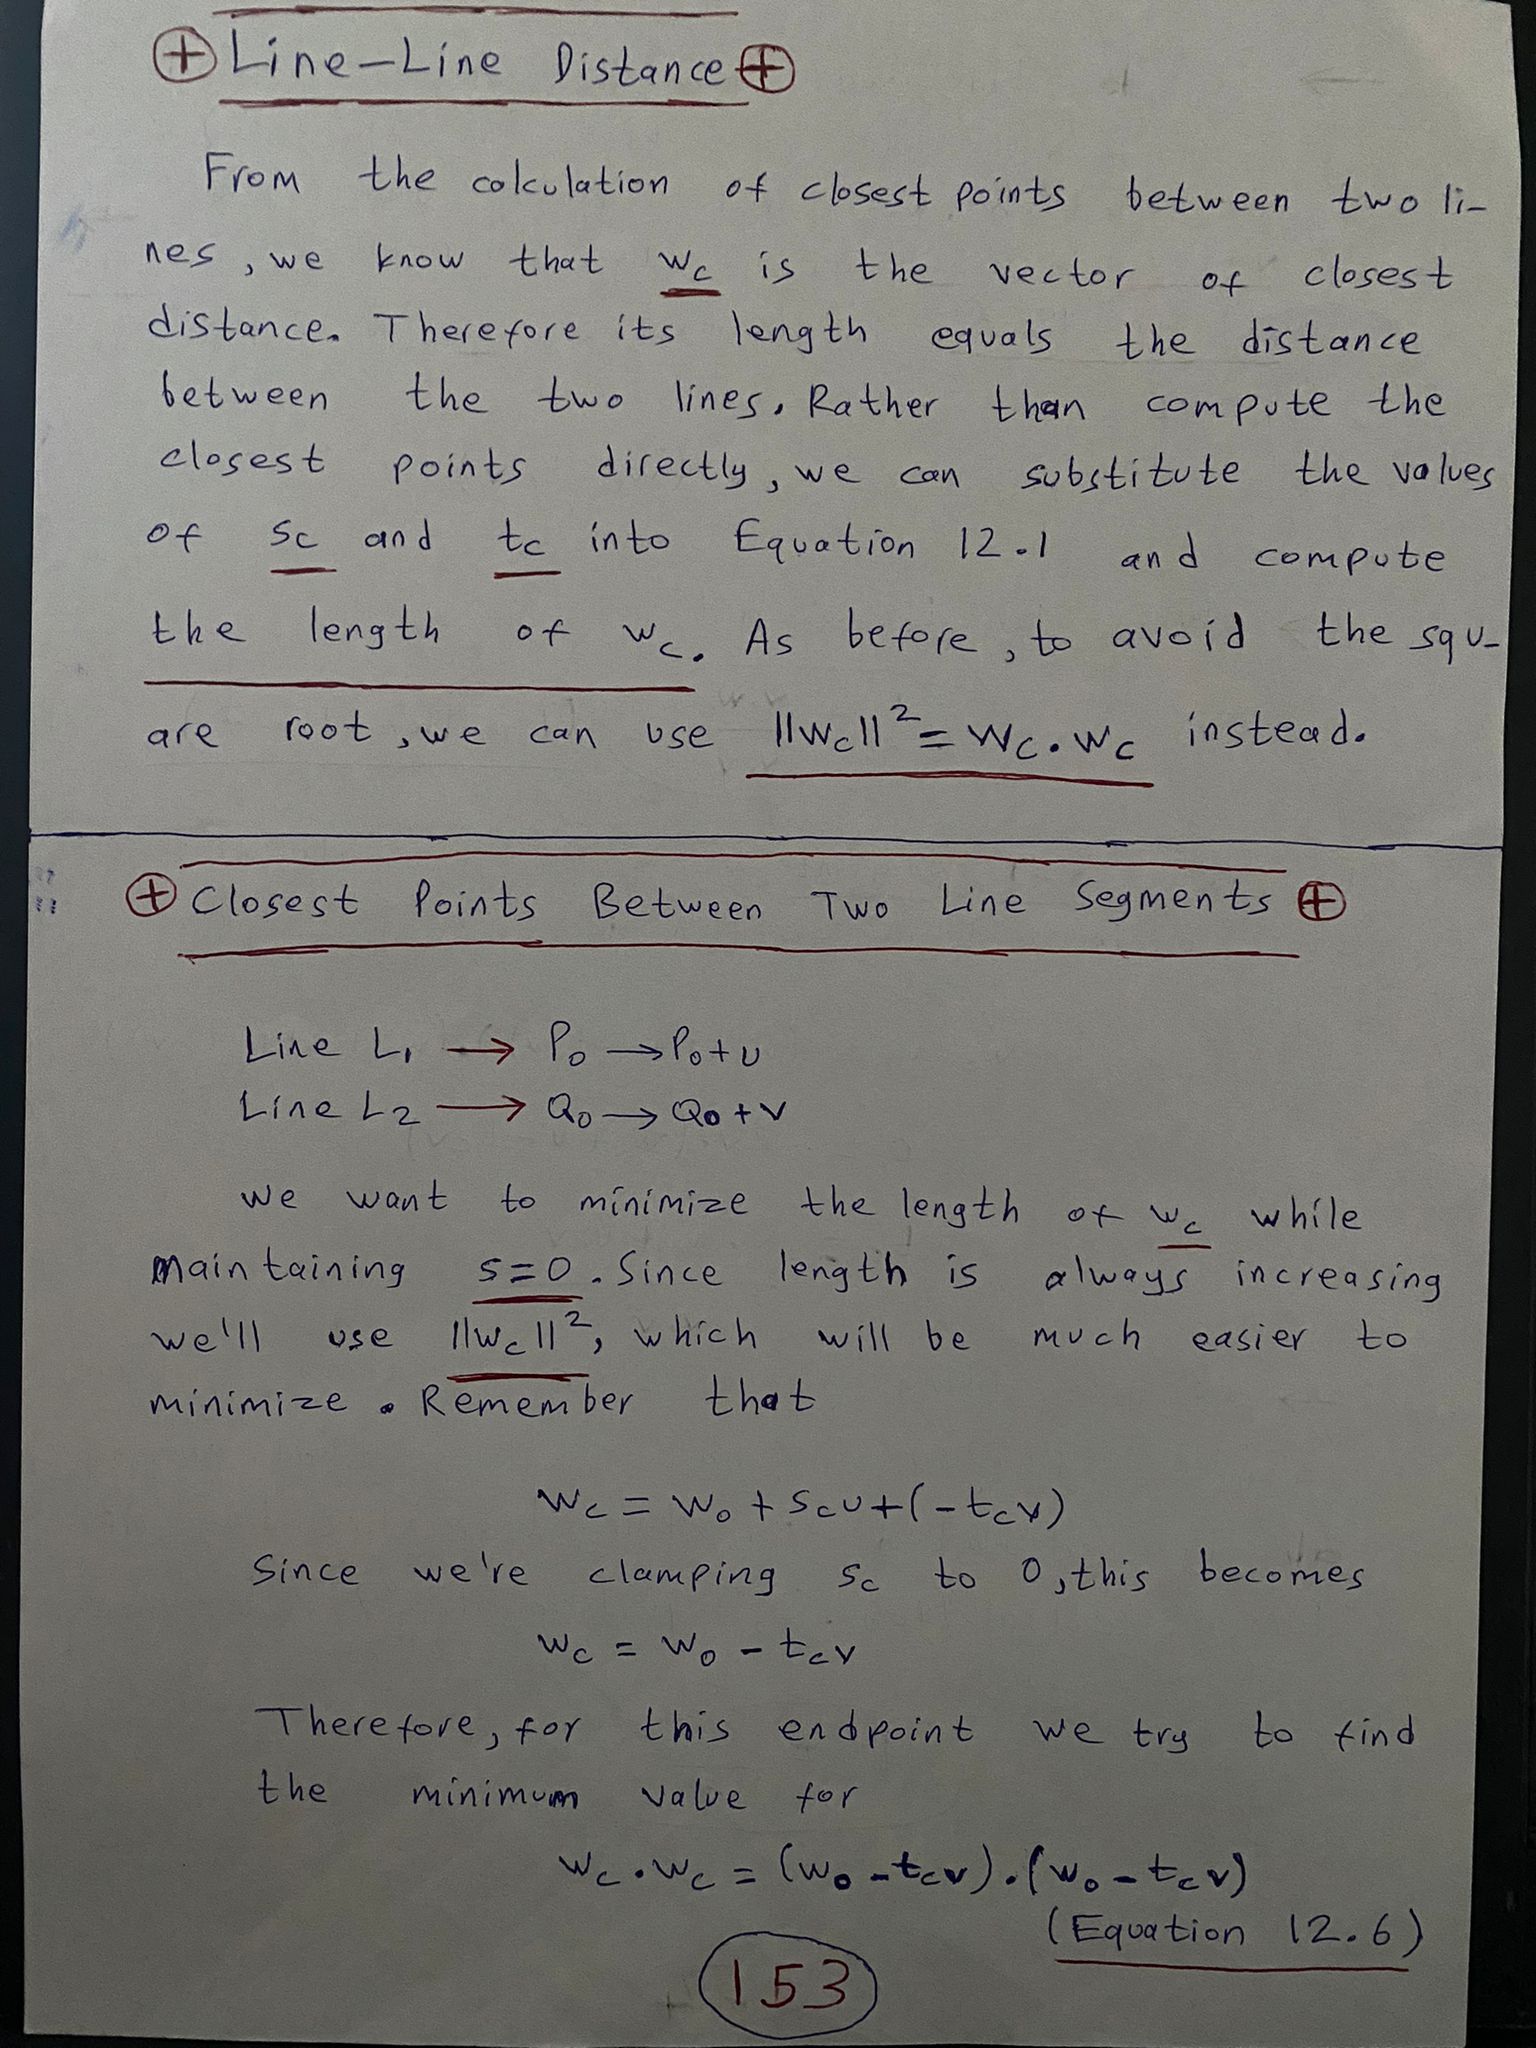 ⊕ Line-Line Distance ⊕
From the calculation of closest points between two li-
nes, we know that w_c is the vector of closest
distance. Therefore its length equals the distance
between the two lines. Rather than compute the
closest points directly, we can substitute the values
of s_c and t_c into Equation 12.1 and compute
the length of w_c. As before, to avoid the squ-
are root, we can use ||w_c||² = w_c · w_c instead.
⊕ Closest Points Between Two Line Segments ⊕
Line L₁ → P₀ → P₀+u
Line L₂ → Q₀ → Q₀+v
We want to minimize the length of w_c while
maintaining s=0. Since length is always increasing
we'll use ||w_c||², which will be much easier to
minimize. Remember that
w_c = w₀ + s_c u + (-t_c v)
Since we're clamping s_c to 0, this becomes
w_c = w₀ - t_c v
Therefore, for this endpoint we try to find
the minimum value for
w_c · w_c = (w₀ - t_c v) · (w₀ - t_c v)
(Equation 12.6)
153